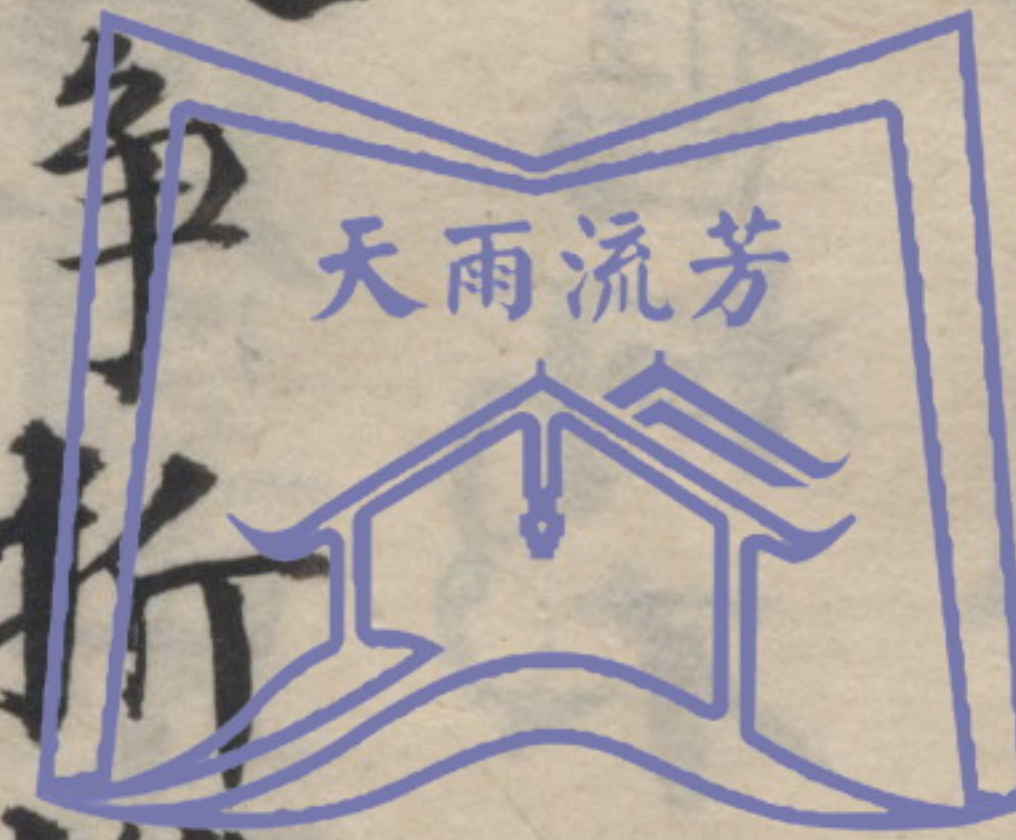 天雨流芳
争折